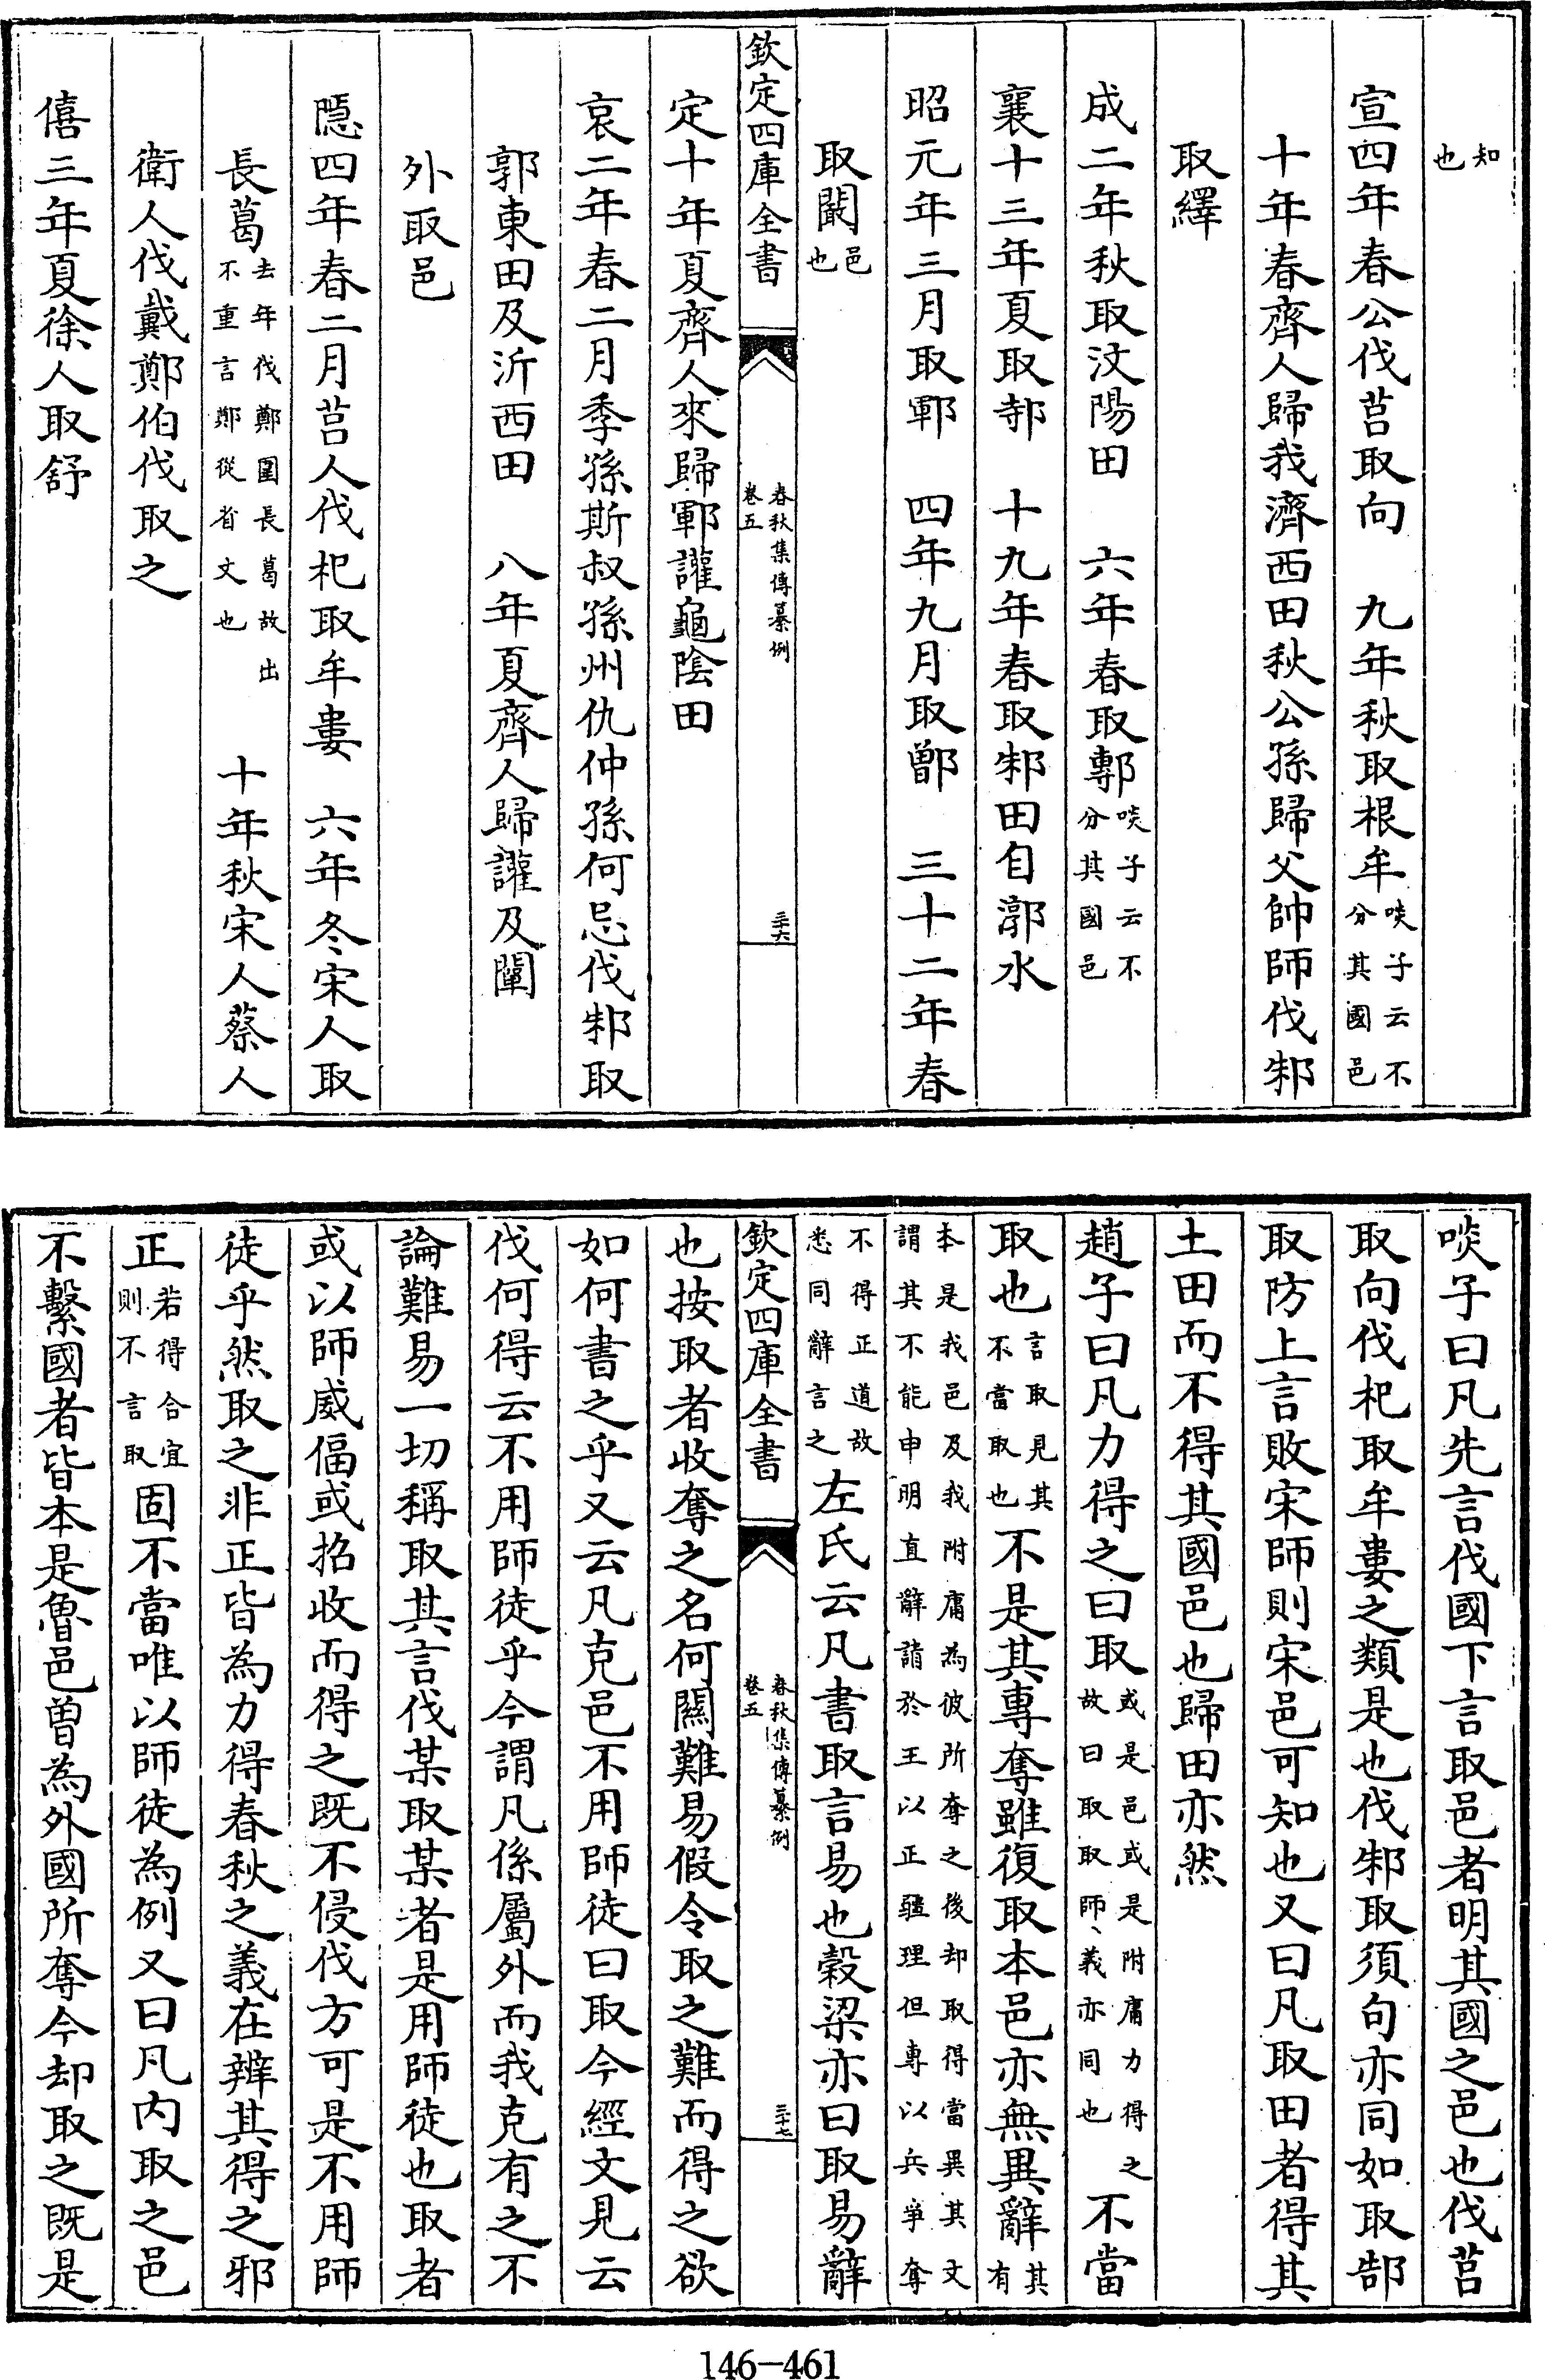 知也
宣四年春公伐莒取向　九年秋取根牟啖子云不分其國邑
十年春齊人歸我濟西田秋公孫歸父帥師伐邾
取繹
成二年秋取汶陽田　六年春取鄟啖子云不分其國邑
襄十三年夏取邿　十九年春取邾田自漷水
昭元年三月取鄆　四年九月取鄫　三十二年春
取闞邑也
欽定四庫全書　春秋集傳纂例卷五　三十六
定十年夏齊人來歸鄆讙龜陰田
哀二年春二月季孫斯叔孫州仇仲孫何忌伐邾取
郭東田及沂西田　八年夏齊人歸讙及闡
外取邑
隱四年春二月莒人伐杞取牟婁　六年冬宋人取
長葛去年伐鄭圍長葛故出不重言鄭從省文也　十年秋宋人蔡人
衛人伐戴鄭伯伐取之
僖三年夏徐人取舒
啖子曰凡先言伐國下言取邑者明其國之邑也伐莒
取向伐杞取牟婁之類是也伐邾取須句亦同如取郜
取防上言敗宋師則宋邑可知也又曰凡取田者得其
土田而不得其國邑也歸田亦然
趙子曰凡力得之曰取或是邑或是附庸力得之故曰取取師、義亦同也不當
取也言取見其不當取也不是其專奪雖復取本邑亦無異辭其有
本是我邑及我附庸為彼所奪之後却取得當異其文謂其不能申明直辭請於王以正疆理但專以兵爭奪
不得正道故悉同辭言之左氏云凡書取言易也穀梁亦曰取易辭
欽定四庫全書　春秋集傳纂例卷五　三十七
也按取者收奪之名何關難易假令取之難而得之欲
如何書之乎又云凡克邑不用師徒曰取今經文見云
伐何得云不用師徒乎今謂凡係屬外而我克有之不
論難易一切稱取其言伐某取某者是用師徒也取者
或以師威偪或招收而得之既不侵伐方可是不用師
徒乎然取之非正皆為力得春秋之義在辨其得之邪
正若得合宜則不言取固不當唯以師徒為例又曰凡内取之邑
不繫國者皆本是魯邑曽為外國所奪今却取之既是
146-461